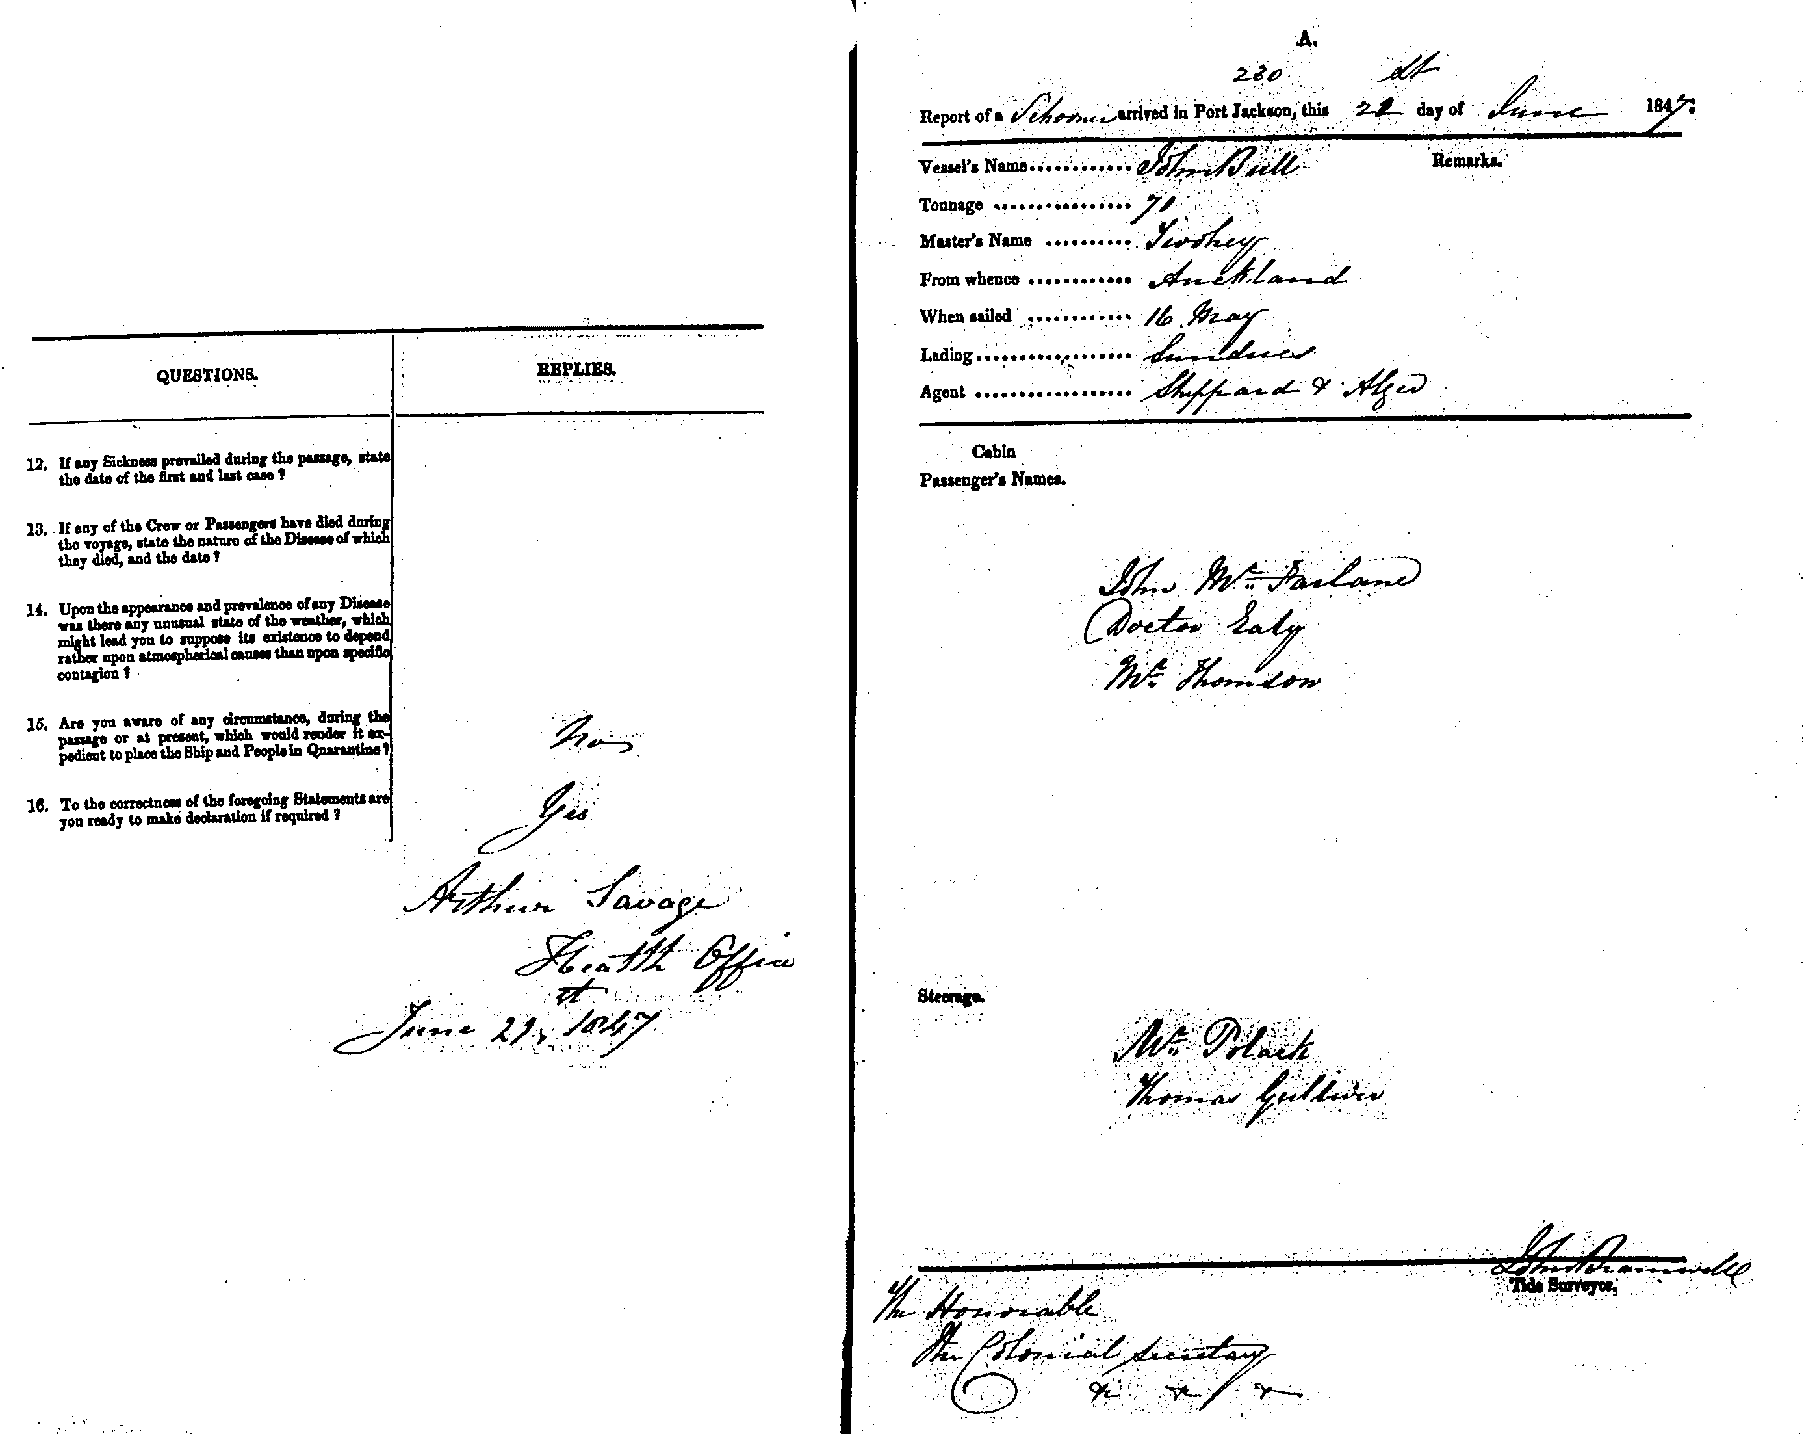 QUESTIONS.
REPLIES.
12. If any Sickness prevailed during the passage, state
the date of the first and last case ?
13. If any of the Crew or Passengers have died during
the voyage, state the nature of the Disease of which
they died, and the date ?
14. Upon the appearance and prevalence of any Disease
was there any unusual state of the weather, which
might lead you to suppose its existence to depend
rather upon atmospherical causes than upon specific
contagion ?
15. Are you aware of any circumstance, during the
passage or at present, which would render it ex-
pedient to place the Ship and People in Quarantine ?
No
16. To the correctness of the foregoing Statements are
you ready to make declaration if required ?
Yes
Arthur Savage
Health Office
June 1847
A.
230
Report of a Schooner arrived in Port Jackson, this day of June 1847.
Vessel's Name ............ John Bull
Remarks.
Tonnage ................ 71
Master's Name .......... Twohey
From whence ............ Auckland
When sailed ............ 16 May
Lading .................. Sundries
Agent .................. Sheppard & Alger
Cabin
Passenger's Names.
John Mc Farlane
Doctor Ealy
Mr Thomson
Steerage.
Mr Polack
Thomas Gulliver
John Bramwell
Tide Surveyor.
The Honorable
The Colonial Secretary
& & &